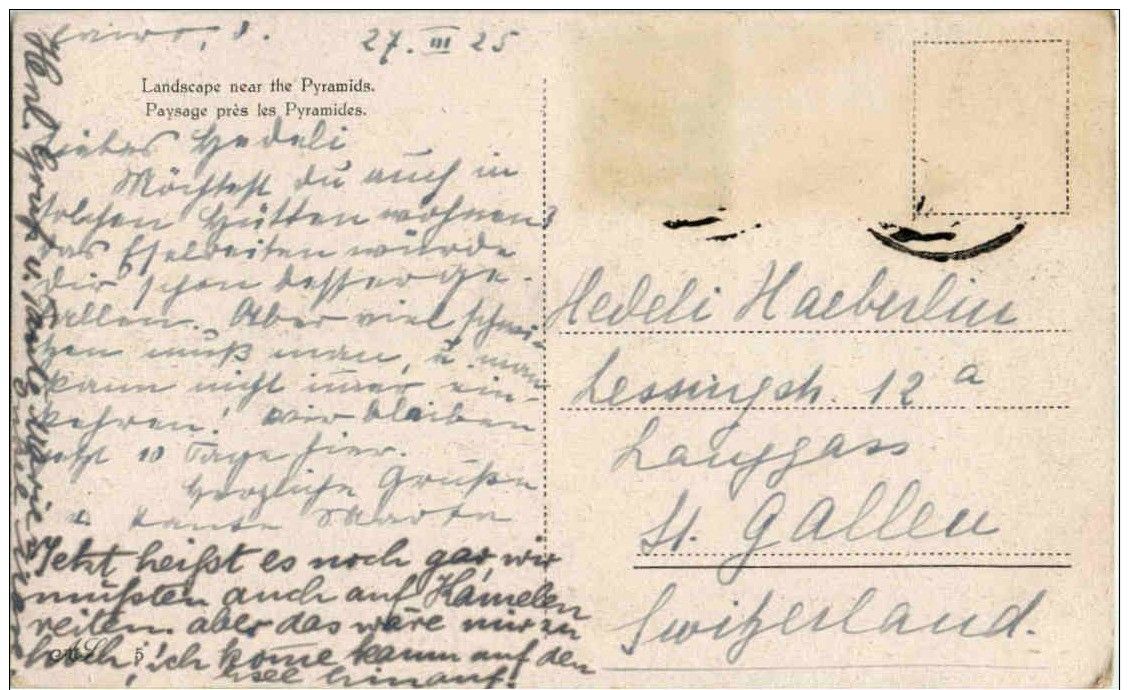 Cairo, d. 27. III 25
Landscape near the Pyramids.
Paysage près les Pyramides.
Liebes Hedeli
Möchtest du auch in
solchen Hütten wohnen?
Das Eselreiten würde
dir schon besser ge-
fallen. Aber viel schwit-
zen muß man, u. man
kann nicht immer ein-
kehren! Wir bleiben
jetzt 10 Tage hier.
Herzliche Grüße
Tante Martha
Jetzt heißt es noch gar, wir
müßten auch auf Kamelen
reiten. aber das wäre mir zu
hoch! ich kome kaum auf den
Esel hinauf!
Herzl. Gruß v. Tante
5
Hedeli Haeberlin
Lessingstr. 12 a
Langgass
St. Gallen
Switzerland.